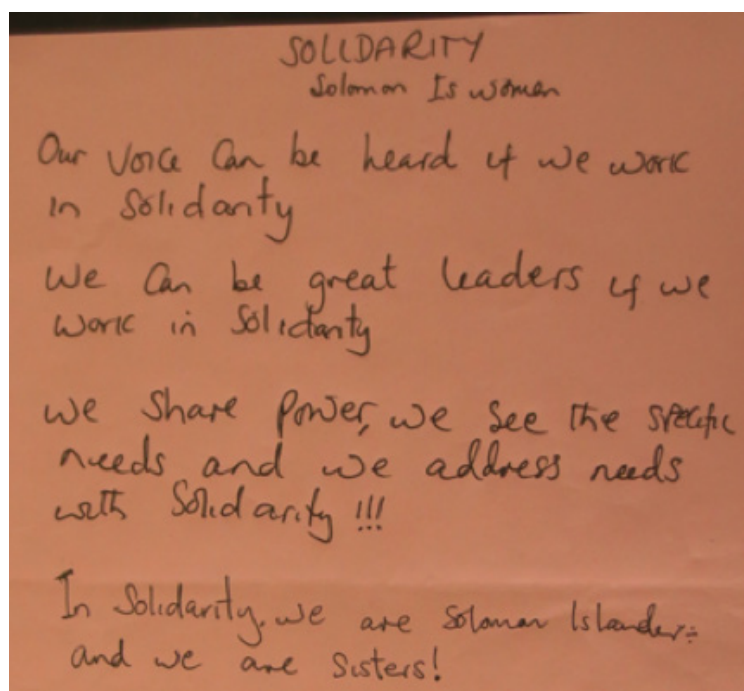 SOLIDARITY
Solomon Is women
Our voice can be heard if we work
in Solidarity
We can be great leaders if we
work in Solidarity
we share power, we see the specific
needs and we address needs
with Solidarity !!!
In Solidarity. we are Solomon Islander:
and we are Sisters!